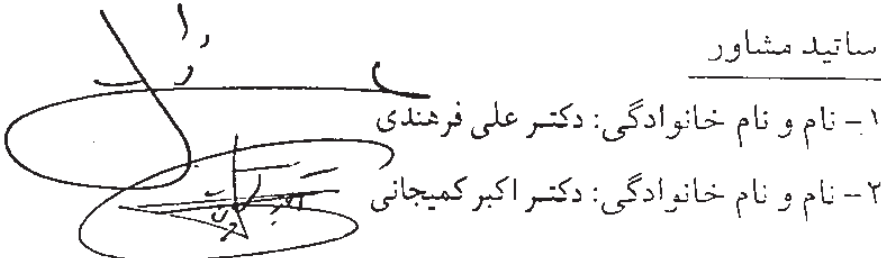 ساتید مشاور
۱- نام و نام خانوادگی: دکتر علی فرهندی
۲- نام و نام خانوادگی: دکتر اکبر کمیجانی